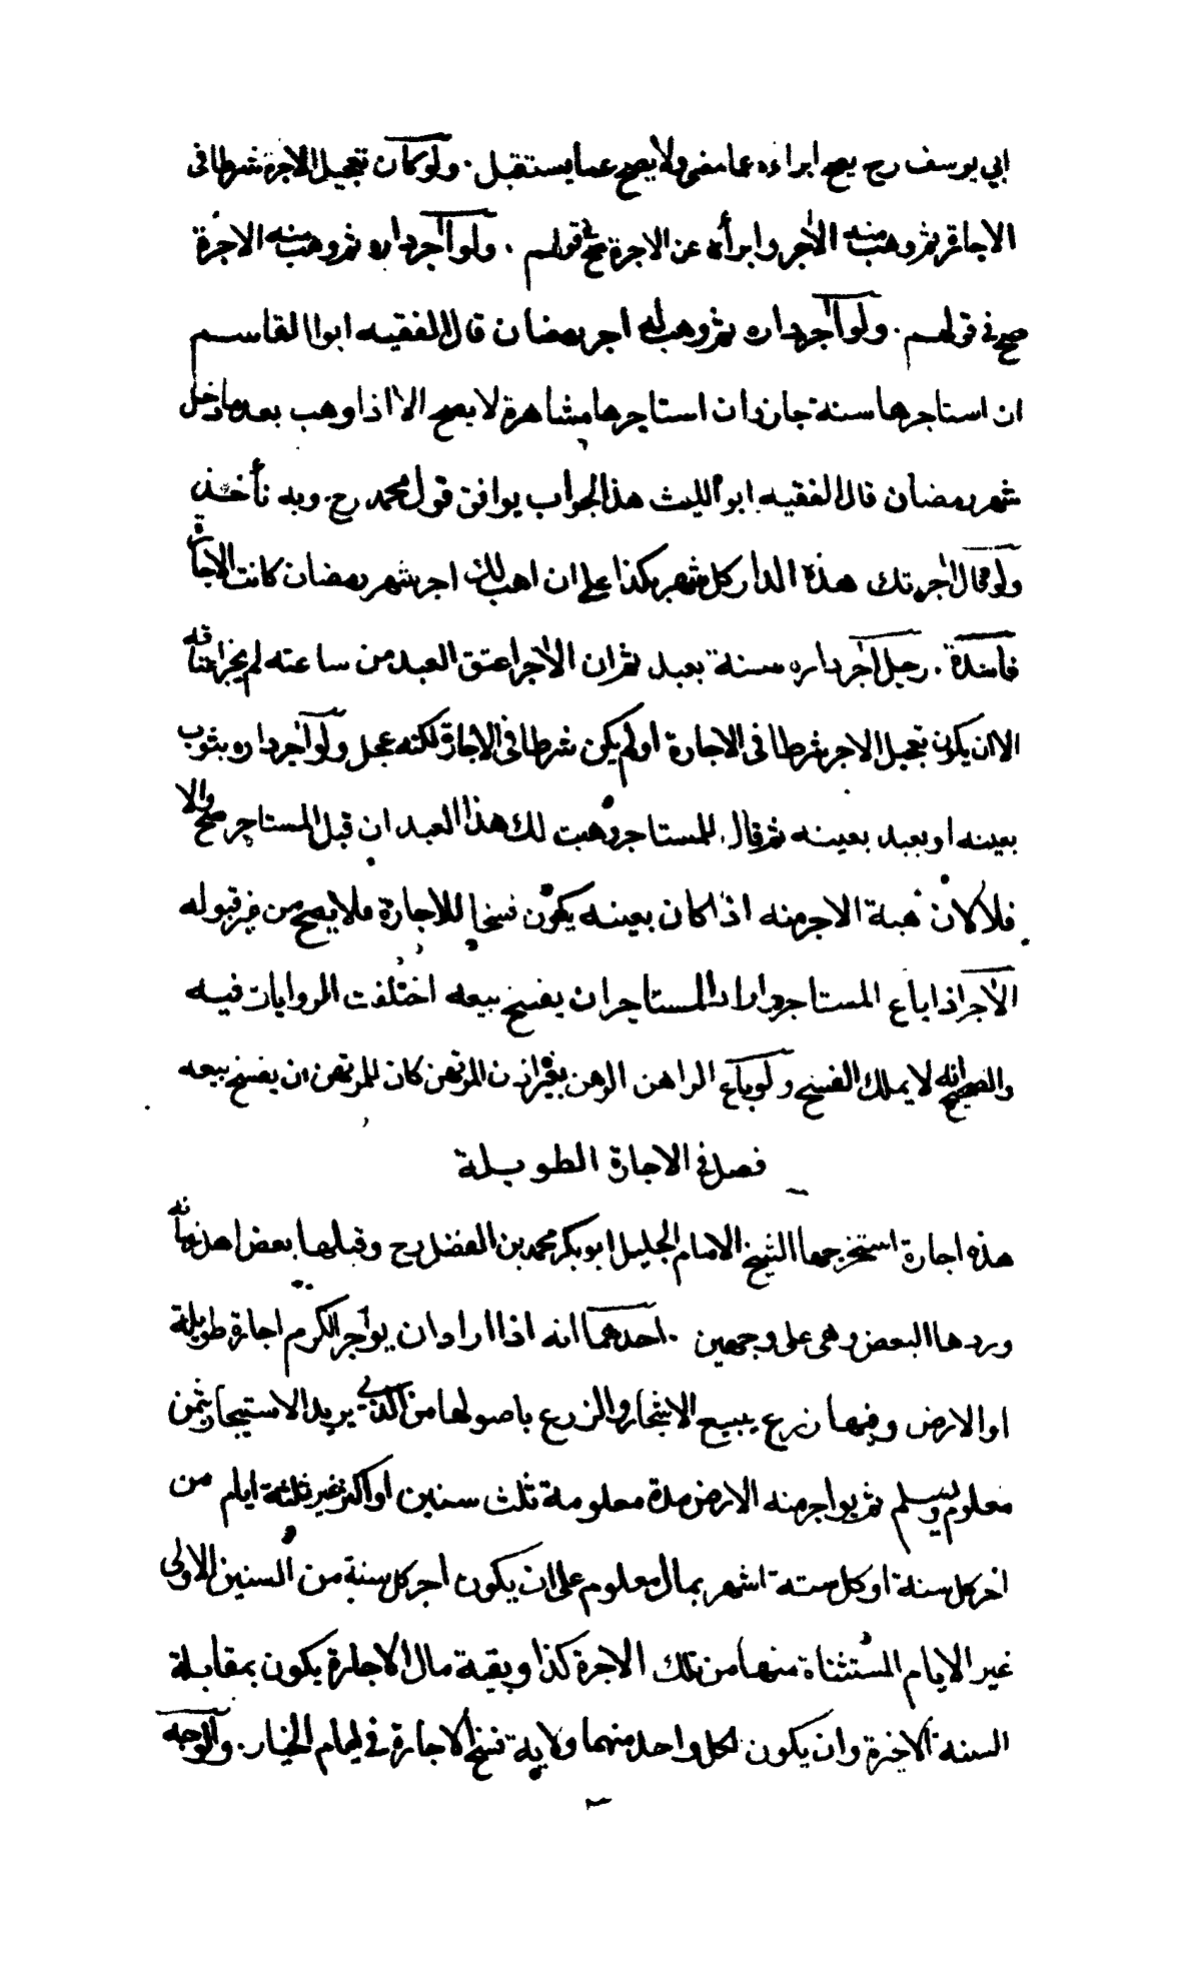 ابي يوسف رح يصح ابراءه عما مضى ولا يصح عما يستقبل . ولو كان تعجيل الاجرة شرطا في
الاجارة ثم وهب منه الآجر وابرأه عن الاجرة صح في قولهم . ولو آجر داره ثم وهب منه الاجرة
صح في قولهم . ولو آجر داره ثم وهب له اجر رمضان قال الفقيه ابو القاسم
ان استاجرها سنة جاز وان استاجرها مشاهرة لا يصح الا اذا وهب بعد ما دخل
شهر رمضان قال الفقيه ابو الليث هذا الجواب يوافق قول محمد رح . وبه نأخذ
ولو قال آجرتك هذه الدار كل شهر بكذا على ان اهب لك اجر شهر رمضان كانت الاجارة
فاسدة . رجل آجر داره سنة بعبد ثم ان الآجر اعتق العبد من ساعته لم يجز اعتاقه
الا ان يكون تعجيل الاجر شرطا في الاجارة او لم يكن شرطا في الاجارة لكنه عجل ولو آجر داره بثوب
بعينه او بعبد بعينه ثم قال للمستاجر وهبت لك هذا العبد ان قبل المستاجر صح والا
فلا لان هبة الاجر منه اذا كان بعينه يكون نسخا للاجارة فلا يصح من غير قبوله
الآجر اذا باع المستاجر واراد المستاجر ان يفسخ بيعه اختلفت الروايات فيه
والصحيح انه لا يملك الفسخ ولو باع الراهن الرهن بغير اذن المرتهن كان للمرتهن ان يفسخ بيعه
فصل في الاجارة الطويلة
هذه اجارة استخرجها الشيخ الامام الجليل ابو بكر محمد بن الفضل رح وقبلها بعض اهل زمانه
وردها البعض وهي على وجهين . احدهما انه اذا اراد ان يواجر الكرم اجارة طويلة
او الارض وفيها زرع يبيع الاشجار والزرع باصولها من الذي يريد الاستيجار بثمن
معلوم ويسلم ثم يواجر منه الارض مدة معلومة ثلث سنين او اكثر غير ثلثة ايام من
اخر كل سنة او كل ستة اشهر بمال معلوم على ان يكون اجر كل سنة من السنين الاولى
غير الايام المستثناة منها من تلك الاجرة كذا وبقية مال الاجارة يكون بمقابلة
السنة الاخرة وان يكون لكل واحد منهما ولاية فسخ الاجارة في ايام الخيار . والوجه